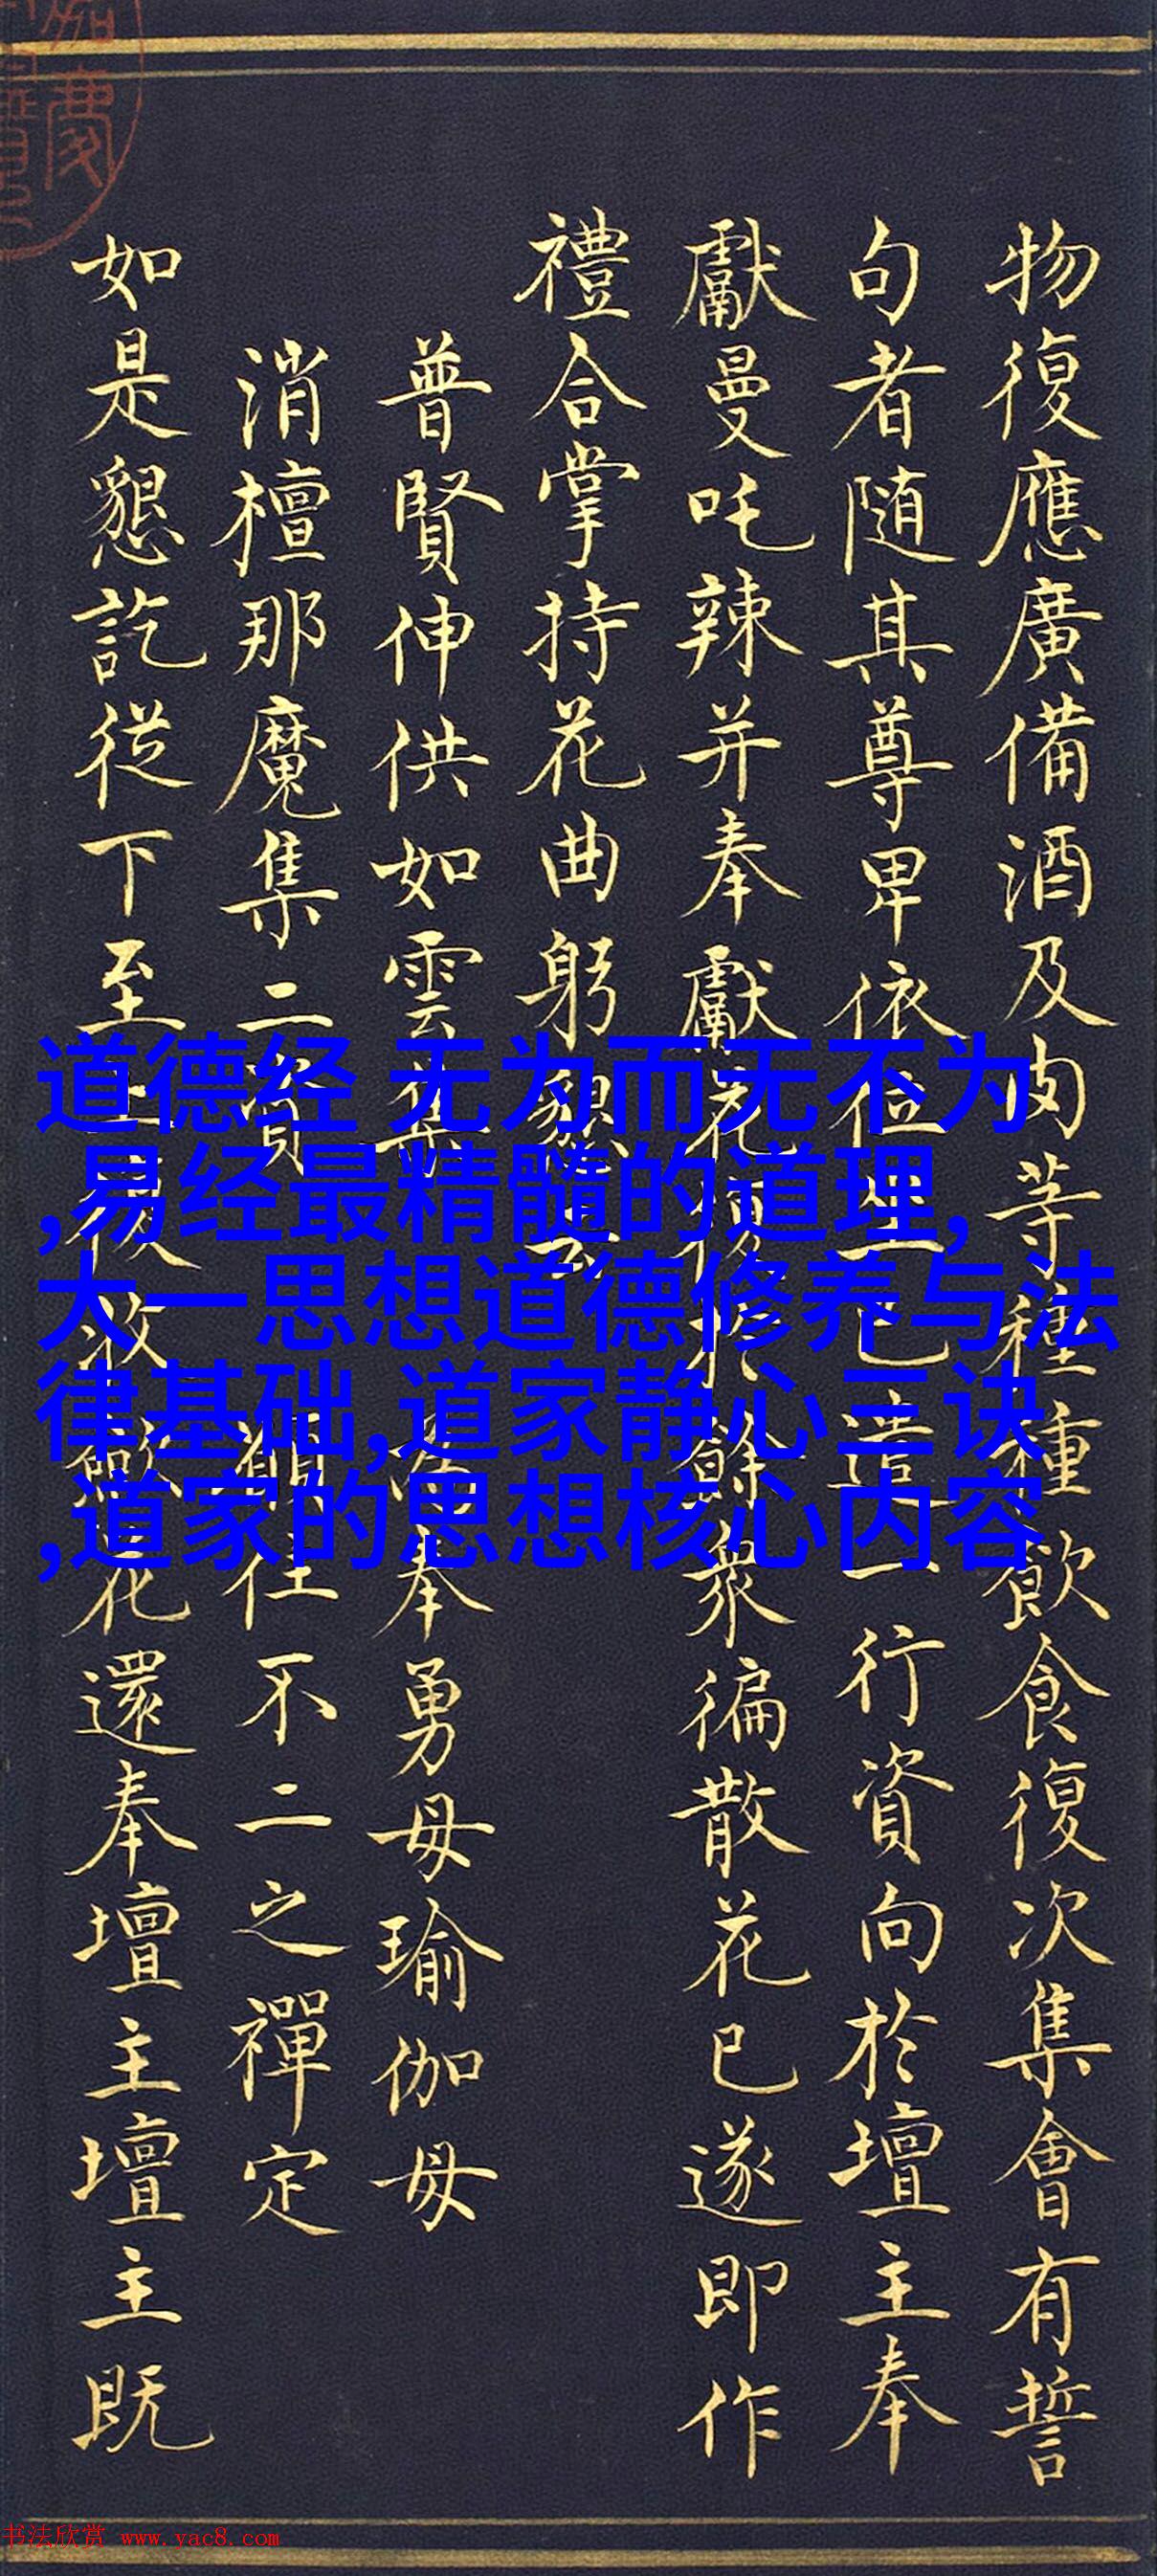 物復應廣備酒及肉等種種飲食復次集會有誓
句者随其尊卑依位坐已造一行資向於壇主奉
獻曼吒辣并奉獻花餘眾徧散花已遂即作
禮合掌持花曲躬懇云
普賢伸供如雲集 為奉勇母瑜伽母
消檀那魔集二資 願住不二之禪定
如是懇訖從下至上後收獻花還奉壇主壇主既
道德经 无为而无不为
,易经最精髓的道理,
大一思想道德修养与法
律基础,道家静心三诀
,道家的思想核心内容
书法欣赏 www.yac8.com